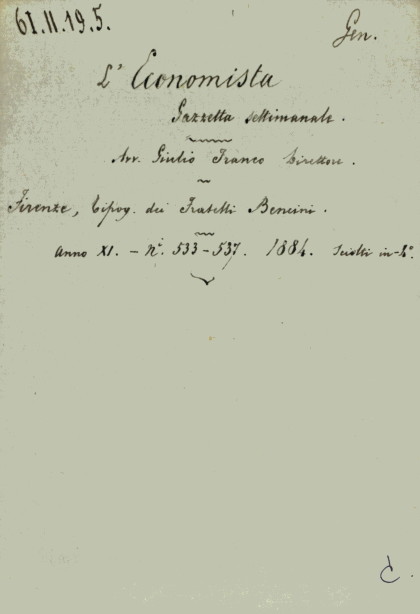 61.II.19.5.
Gen.
L' Economista
Gazzetta settimanale.
Avv. Giulio Franco Direttore.
Firenze, Tipog. dei Fratelli Bencini.
Anno XI. - Nⁱ. 533-537. 1884. Sciolti in-4°.
C.